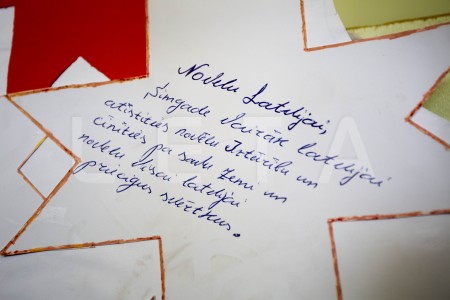 Novēlu Latvijai,
Šimgade Vairāk latvijai
attīstīties novēlu Izturību un
cīnīties pa savu Zemi un
novēlu Visai latvijai
priecīgus svētkus.
LETA